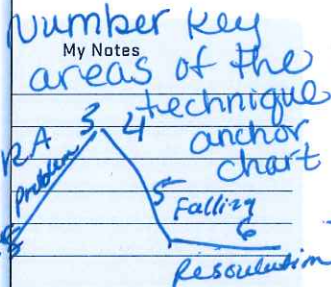 Number key
My Notes
areas of the
technique
3 4 anchor
RA chart
Problem
5 Falling
6
Resoulution